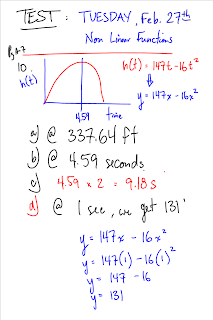 TEST: TUESDAY, Feb. 27th
Non Linear Functions
10.
h(t)
h(t) = 147t - 16t²
y = 147x - 16x²
4.59 time
a) @ 337.64 ft
b) @ 4.59 seconds
c) 4.59 x 2 = 9.18 s
d) @ 1 sec, we get 131'
y = 147x - 16x²
y = 147(1) - 16(1)²
y = 147 - 16
y = 131